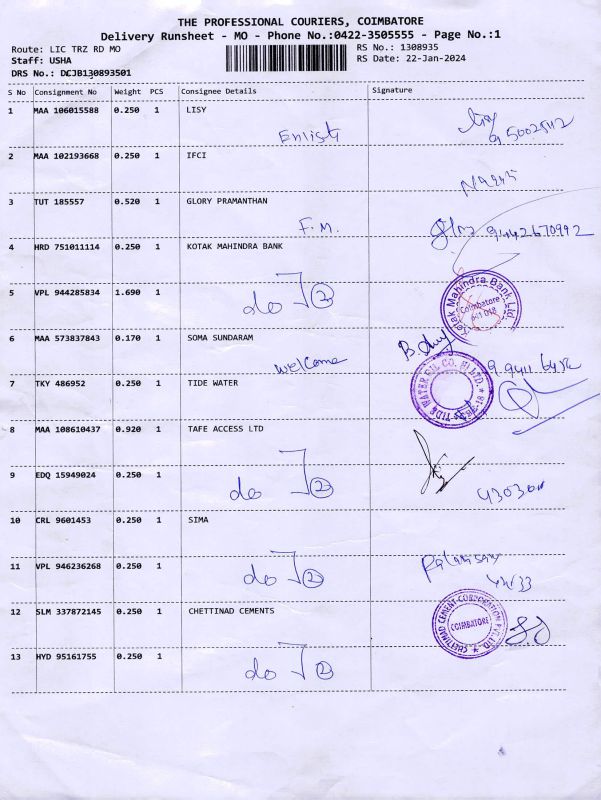 THE PROFESSIONAL COURIERS, COIMBATORE
Delivery Runsheet - MO - Phone No.:0422-3505555 - Page No.:1
Route: LIC TRZ RD MO
RS No.: 1308935
Staff: USHA
RS Date: 22-Jan-2024
DRS No.: DCJB130893501
S No Consignment No Weight PCS Consignee Details Signature
1 MAA 106015588 0.250 1 LISY
Enlist
2 MAA 102193668 0.250 1 IFCI
3 TUT 185557 0.520 1 GLORY PRAMANTHAN
F.M. 9442670992
4 HRD 751011114 0.250 1 KOTAK MAHINDRA BANK
5 VPL 944285834 1.690 1
do 2
Kotak Mahindra Bank Ltd.
Coimbatore
641 018
6 MAA 573837843 0.170 1 SOMA SUNDARAM
welcome
7 TKY 486952 0.250 1 TIDE WATER
TIDE WATER OIL CO.
8 MAA 108610437 0.920 1 TAFE ACCESS LTD
9 EDQ 15949024 0.250 1
do 2
10 CRL 9601453 0.250 1 SIMA
11 VPL 946236268 0.250 1
do 2
12 SLM 337872145 0.250 1 CHETTINAD CEMENTS
CHETTINAD CEMENT CORPORATION PVT. LTD.
COIMBATORE
13 HYD 95161755 0.250 1
do 2